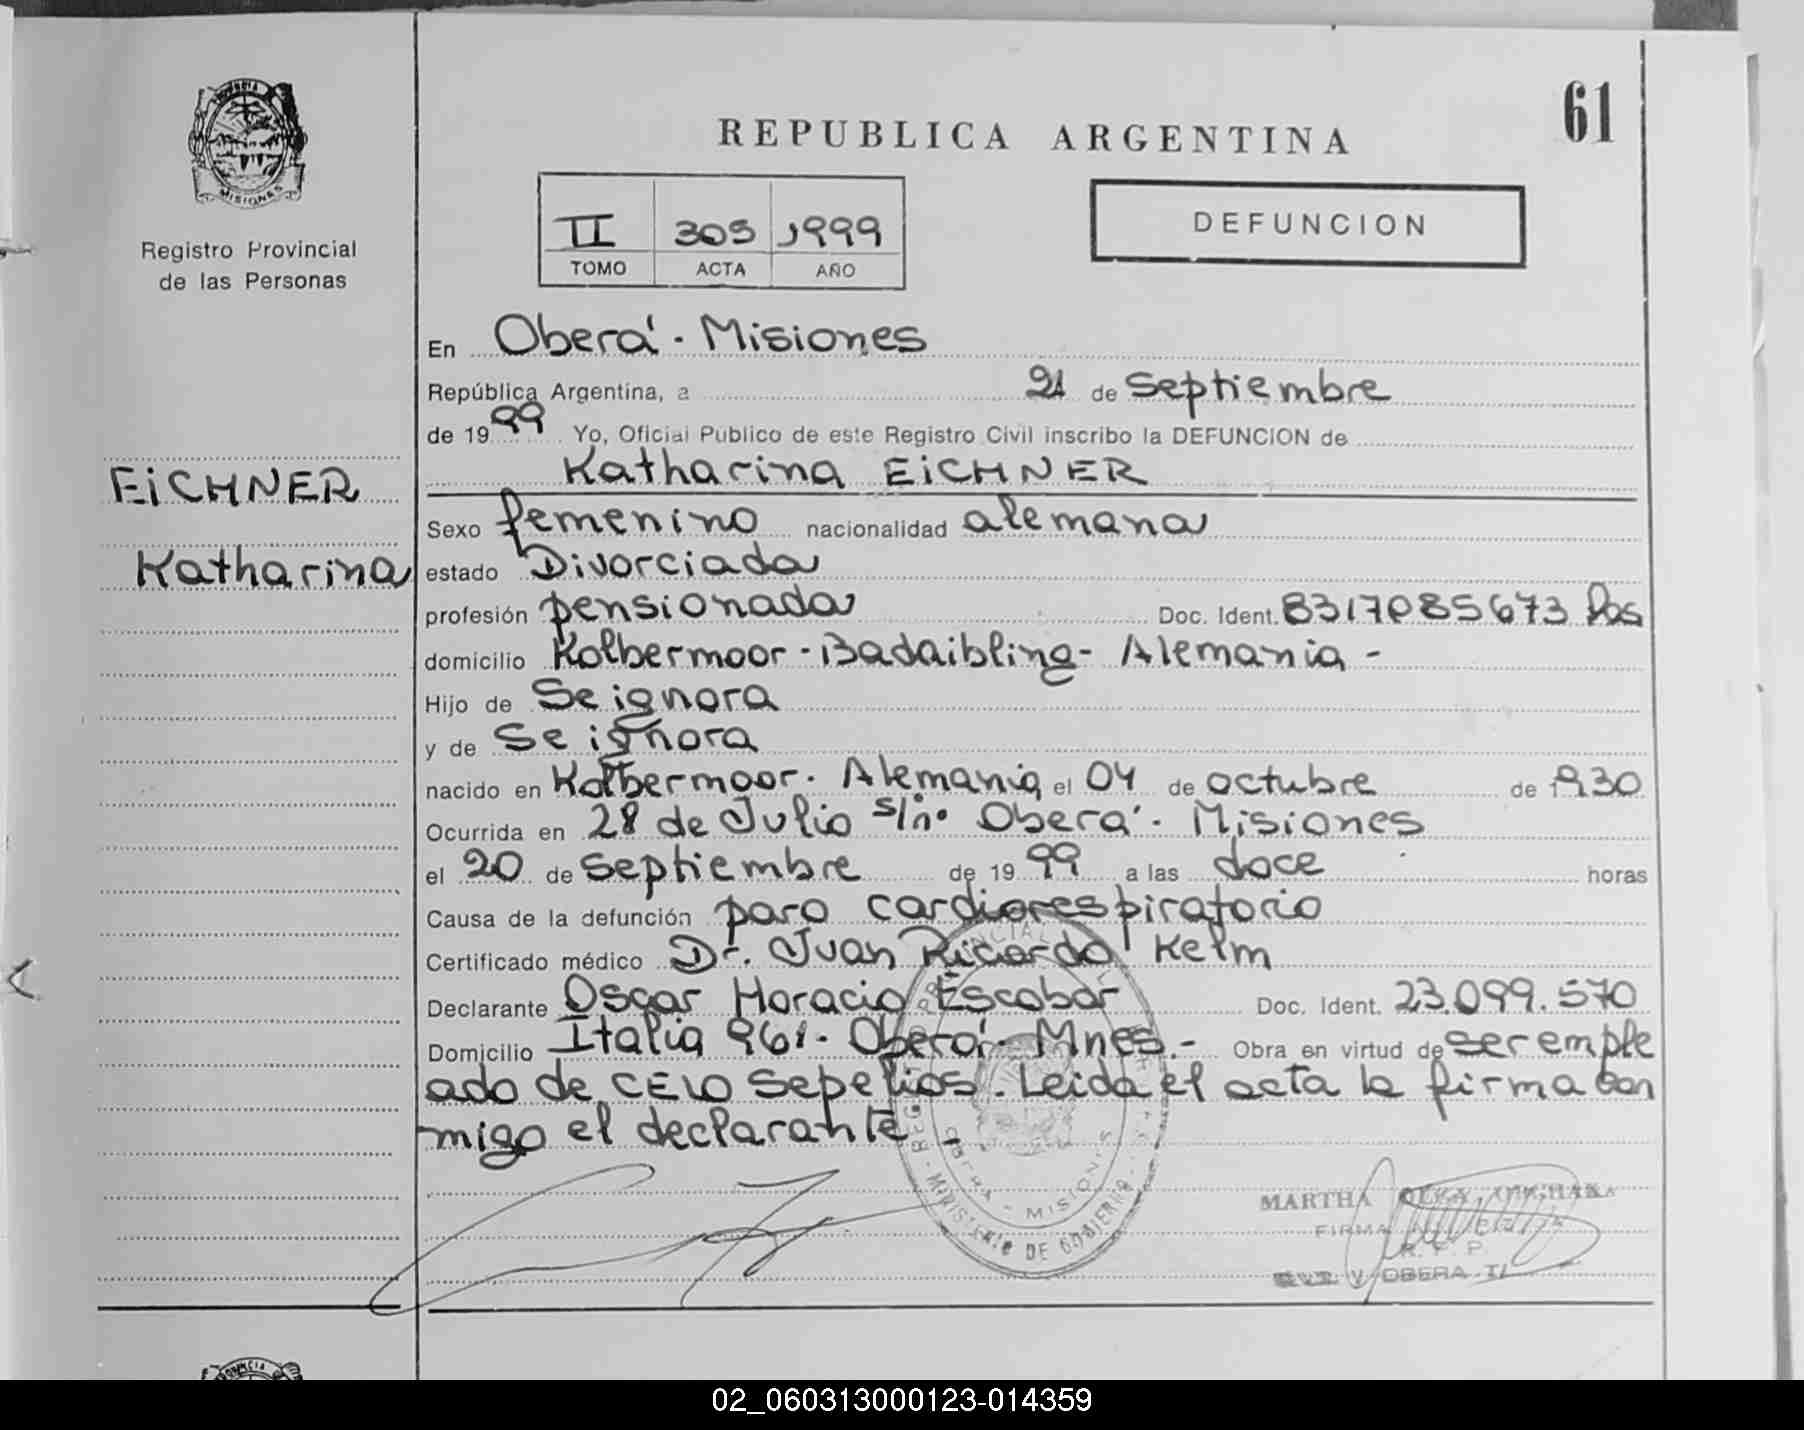 PROVINCIA
MISIONES
Registro Provincial
de las Personas
EiCHNER
Katharina
61
REPUBLICA ARGENTINA
II 305 1999
TOMO ACTA AÑO
DEFUNCION
En Oberá - Misiones
República Argentina, a 21 de Septiembre
de 1999 Yo, Oficial Público de este Registro Civil inscribo la DEFUNCION de
Katharina EiCHNER
Sexo femenino nacionalidad alemana
estado Divorciada
profesión pensionada Doc. Ident. 8317085673 Pas
domicilio Kolbermoor - Badaibling - Alemania -
Hijo de Se ignora
y de Se ignora
nacido en Kolbermoor. Alemania el 04 de octubre de 1930
Ocurrida en 28 de Julio s/nº Oberá - Misiones
el 20 de septiembre de 1999 a las doce horas
Causa de la defunción paro cardiorespiratorio
Certificado médico Dr. Juan Ricardo Kelm
Declarante Oscar Horacio Escobar Doc. Ident. 23.099.570
Domicilio Italia 961 - Oberá - Mnes. - Obra en virtud de ser emple
ado de CELO Sepelios. Leida el acta la firma con
migo el declarante -
MINISTERIO DE GOBIERNO
OBERA - MISIONES
MARTHA
FIRMA
R. P. P.
OBERA
02_060313000123-014359